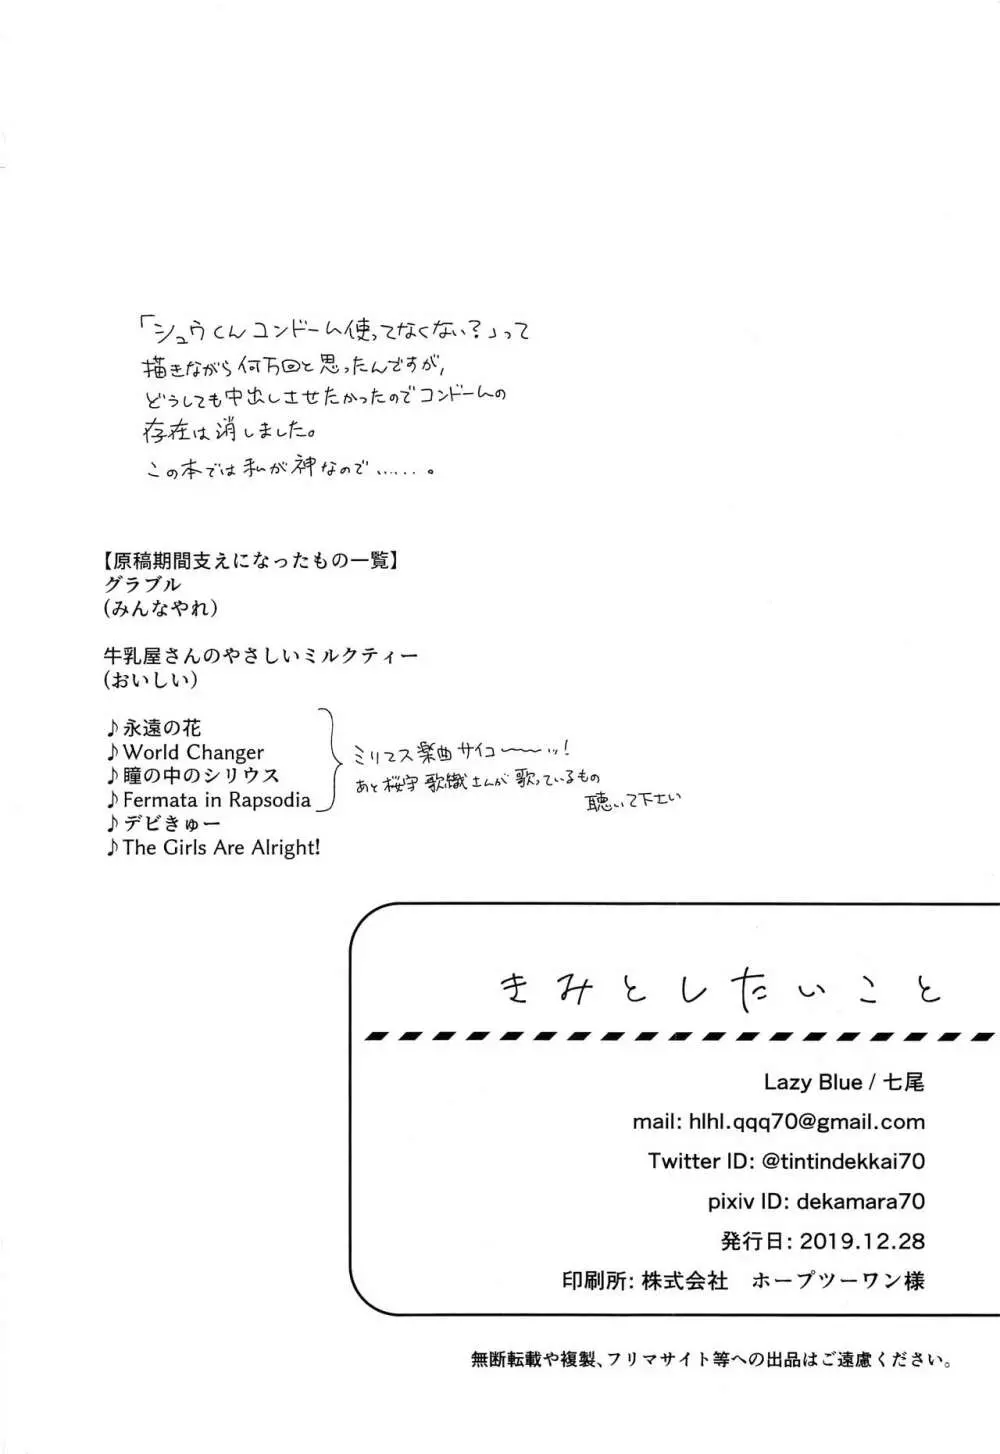 「シュウくんコンドーム使ってなくない?」って
描きながら何万回と思ったんですが、
どうしても中出しさせたかったのでコンドームの
存在は消しました。
この本では私が神なので……。
【原稿期間支えになったもの一覧】
グラブル
(みんなやれ)
牛乳屋さんのやさしいミルクティー
(おいしい)
♪永遠の花
♪World Changer
♪瞳の中のシリウス
♪Fermata in Rapsodia
♪デビきゅー
♪The Girls Are Alright!
ミリマス楽曲サイコ〜〜ッ!
あと桜守歌織さんが歌っているもの
聴いて下さい
きみとしたいこと
Lazy Blue / 七尾
mail: hlhl.qqq70@gmail.com
Twitter ID: @tintindekkai70
pixiv ID: dekamara70
発行日: 2019.12.28
印刷所: 株式会社　ホープツーワン様
無断転載や複製、フリマサイト等への出品はご遠慮ください。